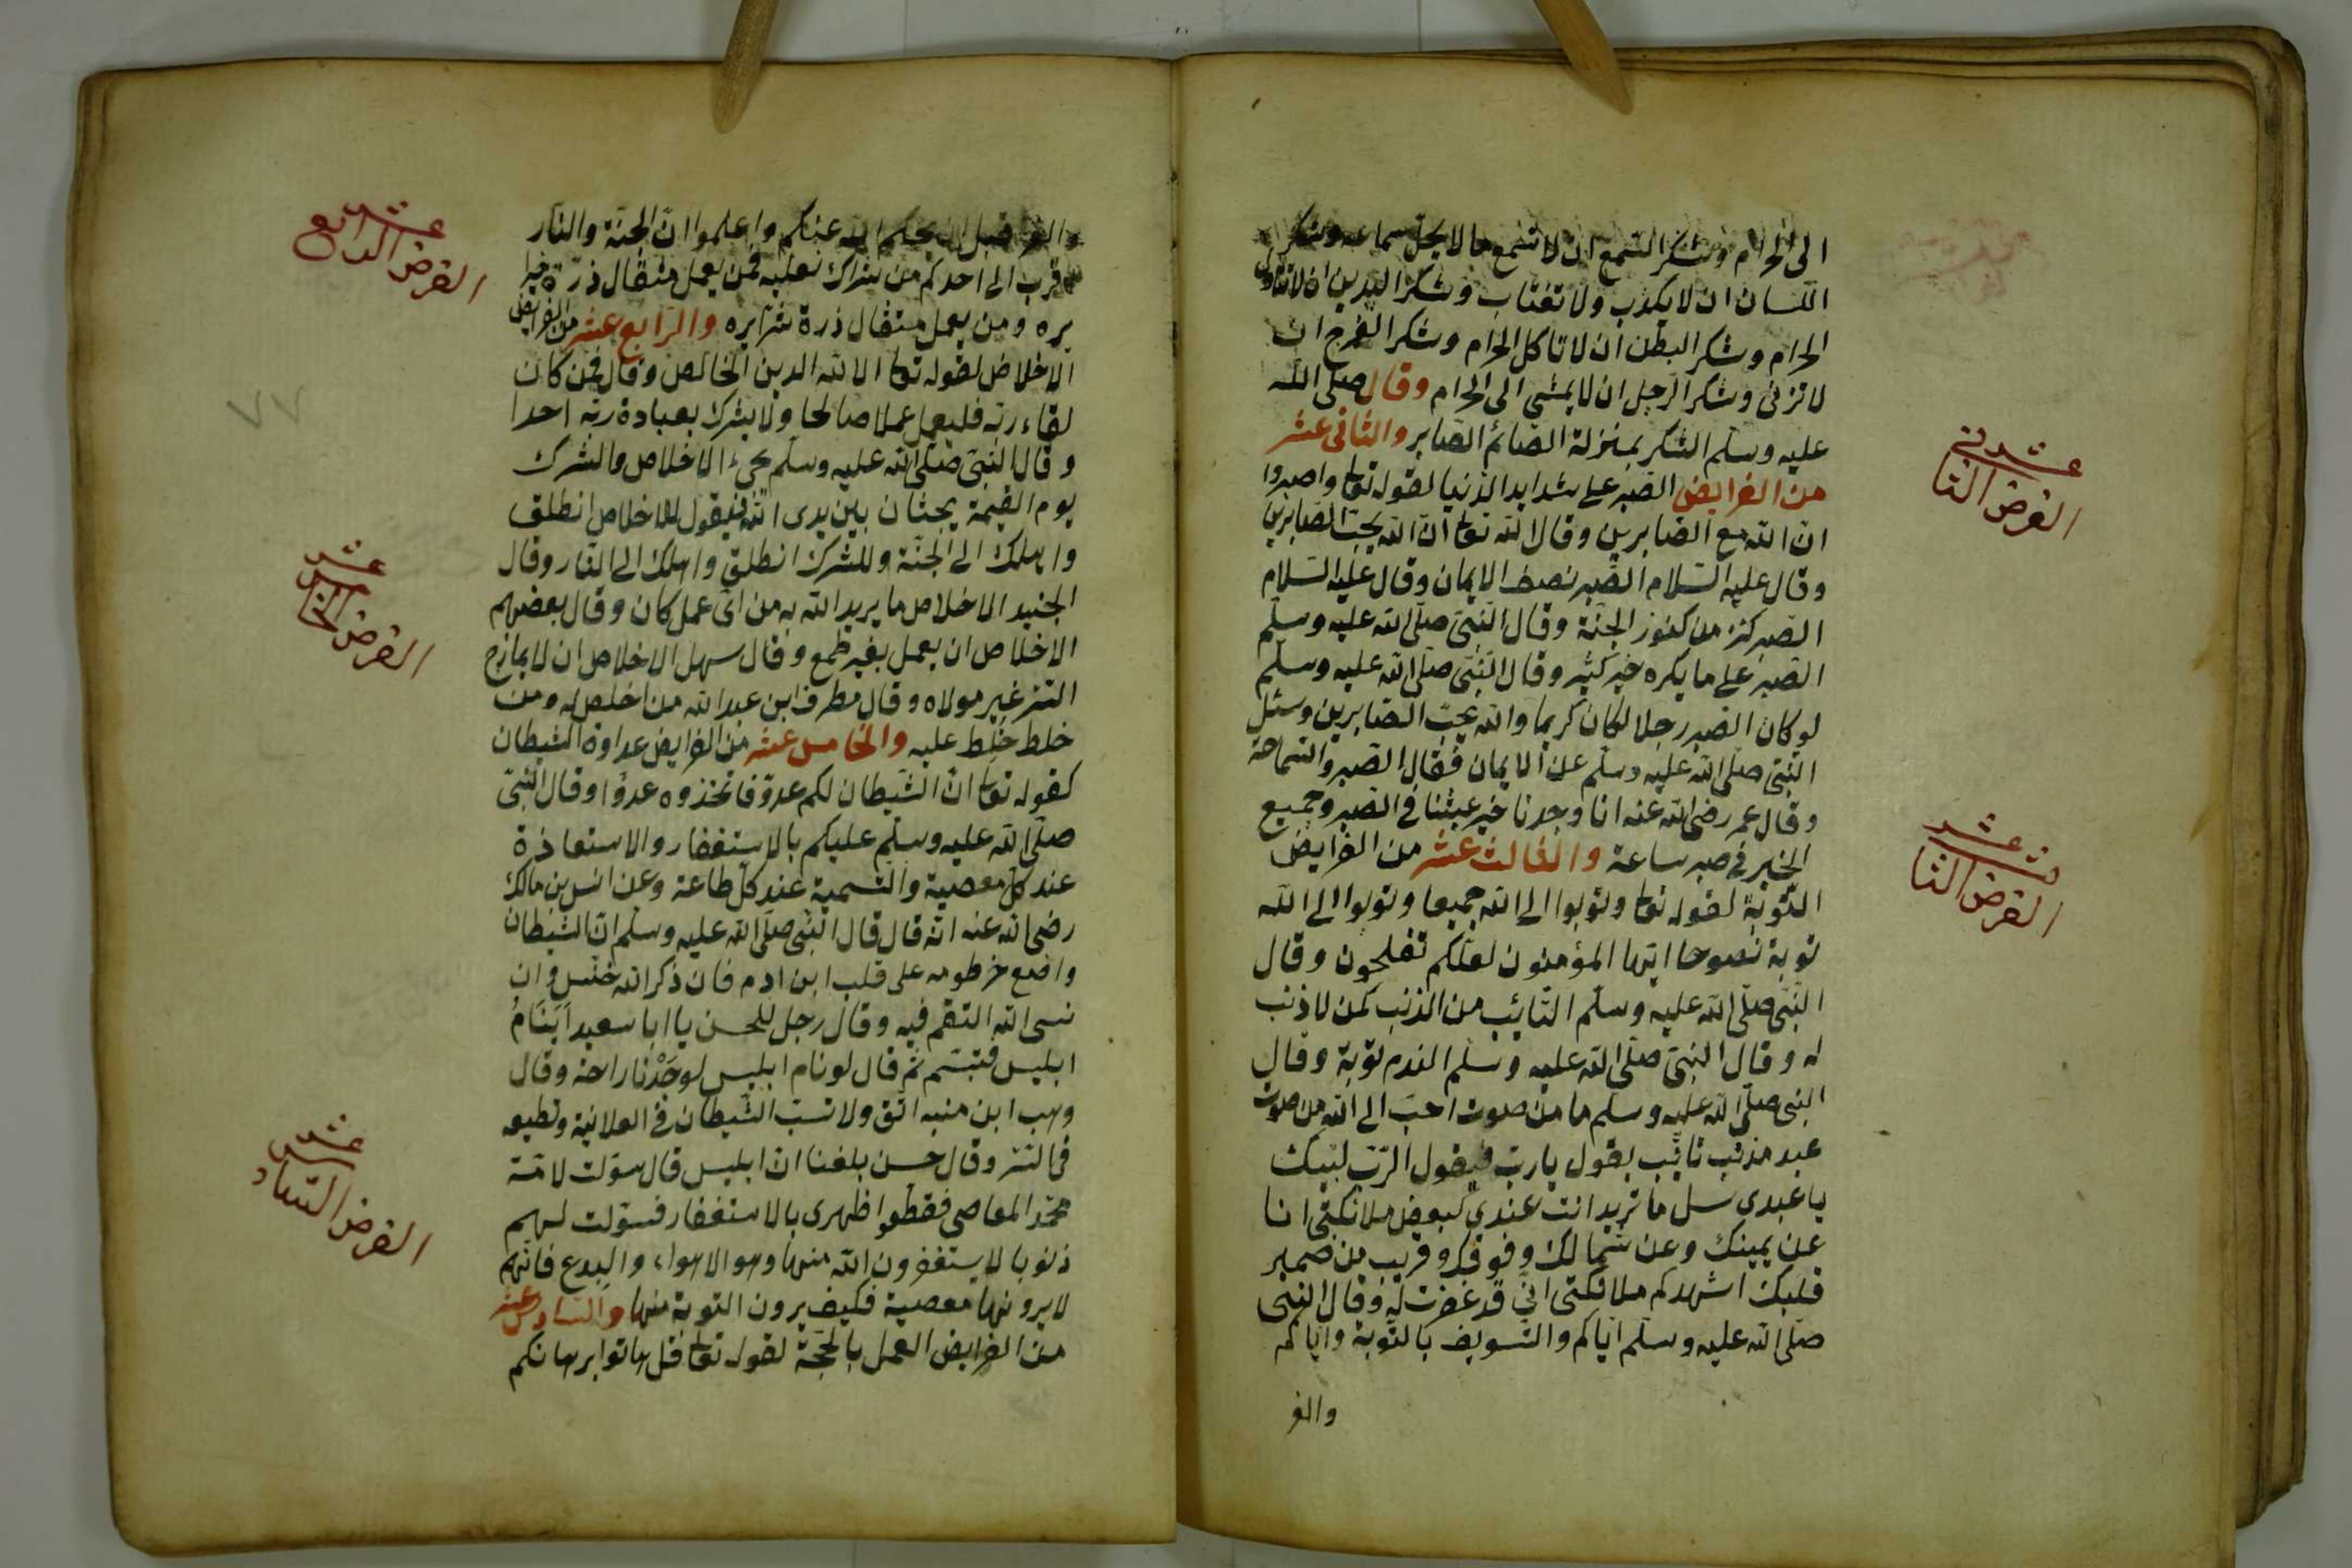 الى الحرام وشكر السمع ان لا تسمع ما لا يحل سماعه وشكر
اللسان ان لا يكذب ولا تغتاب وشكر اليدين ان لا تتناول
الحرام وشكر البطن ان لا تاكل الحرام وشكر الفرج ان
لا تزنى وشكر الرجل ان لا يمشى الى الحرام وقال صلى الله
عليه وسلم الشكر بمنزلة الصائم الصابر والثانى عشر
من الفرايض الصبر على شدايد الدنيا لقوله تعا واصبروا
ان الله مع الصابرين وقال الله تعا ان الله يحب الصابرين
وقال عليه السلام الصبر نصف الايمان وقال عليه السلام
الصبر كنز من كنوز الجنة وقال النبى صلى الله عليه وسلم
الصبر على ما يكره خير كثير وقال النبى صلى الله عليه وسلم
لو كان الصبر رجلا لكان كريما والله يحب الصابرين وسئل
النبى صلى الله عليه وسلم عن الايمان فقال الصبر والسماحة
وقال عمر رضى الله عنه انا وجدنا خير عيشنا فى الصبر وجميع
الخير فى صبر ساعة والثالث عشر من الفرايض
التوبة لقوله تعا وتوبوا الى الله جميعا وتوبوا الى الله
توبة نصوحا ايها المؤمنون لعلكم تفلحون وقال
النبى صلى الله عليه وسلم التائب من الذنب كمن لا ذنب
له وقال النبى صلى الله عليه وسلم الندم توبة وقال
النبى صلى الله عليه وسلم ما من صوت احب الى الله من صوت
عبد مذنب تائب يقول يا رب فيقول الرب لبيك
يا عبدى سل ما تريد انت عندى كبعض ملائكتى انا
عن يمينك وعن شمالك وفوقك وقريب من ضمير
قلبك اشهدكم ملائكتى انى قد غفرت له وقال النبى
صلى الله عليه وسلم اياكم والتسويف بالتوبة واياكم
والغر
عشر نى
الفرض الثا
لث عشر
الفرض الثا
والغر قبل ان يحكم الله عنكم واعلموا ان الجنة والنار
اقرب الى احدكم من شراك نعليه فمن يعمل مثقال ذرة خيرا
يره ومن يعمل مثقال ذرة شرا يره والرابع عشر من الفرايض
الاخلاص لقوله تعا الا لله الدين الخالص وقال فمن كان
لقاء ربه فليعمل عملا صالحا ولا يشرك بعبادة ربه احدا
وقال النبى صلى الله عليه وسلم يجئ الاخلاص والشرك
يوم القيمة يجثان بين يدى الله فيقول للاخلاص انطلق
واهلك الى الجنة وللشرك انطلق واهلك الى النار وقال
الجنيد الاخلاص ما يريد الله به من اى عمل كان وقال بعضهم
الاخلاص ان يعمل بغير طمع وقال سهل الاخلاص ان لا يمازج
السر غير مولاه وقال مطرف ابن عبد الله من اخلص له ومن
خلط خلط عليه والخامس عشر من الفرايض عداوة الشيطان
كقوله تعا ان الشيطان لكم عدو فاتخذوه عدوا وقال النبى
صلى الله عليه وسلم عليكم بالاستغفار والاستعاذة
عند كل معصية والتسمية عند كل طاعة وعن انس بن مالك
رضى الله عنه انه قال قال النبى صلى الله عليه وسلم ان الشيطان
واضع خرطومه على قلب ابن ادم فان ذكر الله خنس وان
نسى الله التقم فيه وقال رجل للحسن يا ابا سعيد اَيَنَامُ
ابليس فتبسم ثم قال لو نام ابليس لوجدْنا راحة وقال
وهب ابن منبه اتق ولا تسب الشيطان فى العلانية وتطيعه
فى السر وقال حسن بلغنا ان ابليس قال سولت لامة
محمد المعاصى فقطعوا ظهرى بالاستغفار فسولت لهم
ذنوبا لا يستغفرون الله منها وهو الاهواء والبدع فانهم
لا يرونها معصية فكيف يرون التوبة منها والسادس عشر
من الفرايض العمل بالحجة لقوله تعا قل هاتوا برهانكم
عشر
الفرض الرابع
عشر
الفرض الخامس
عشر
الفرض الساد
٧٧